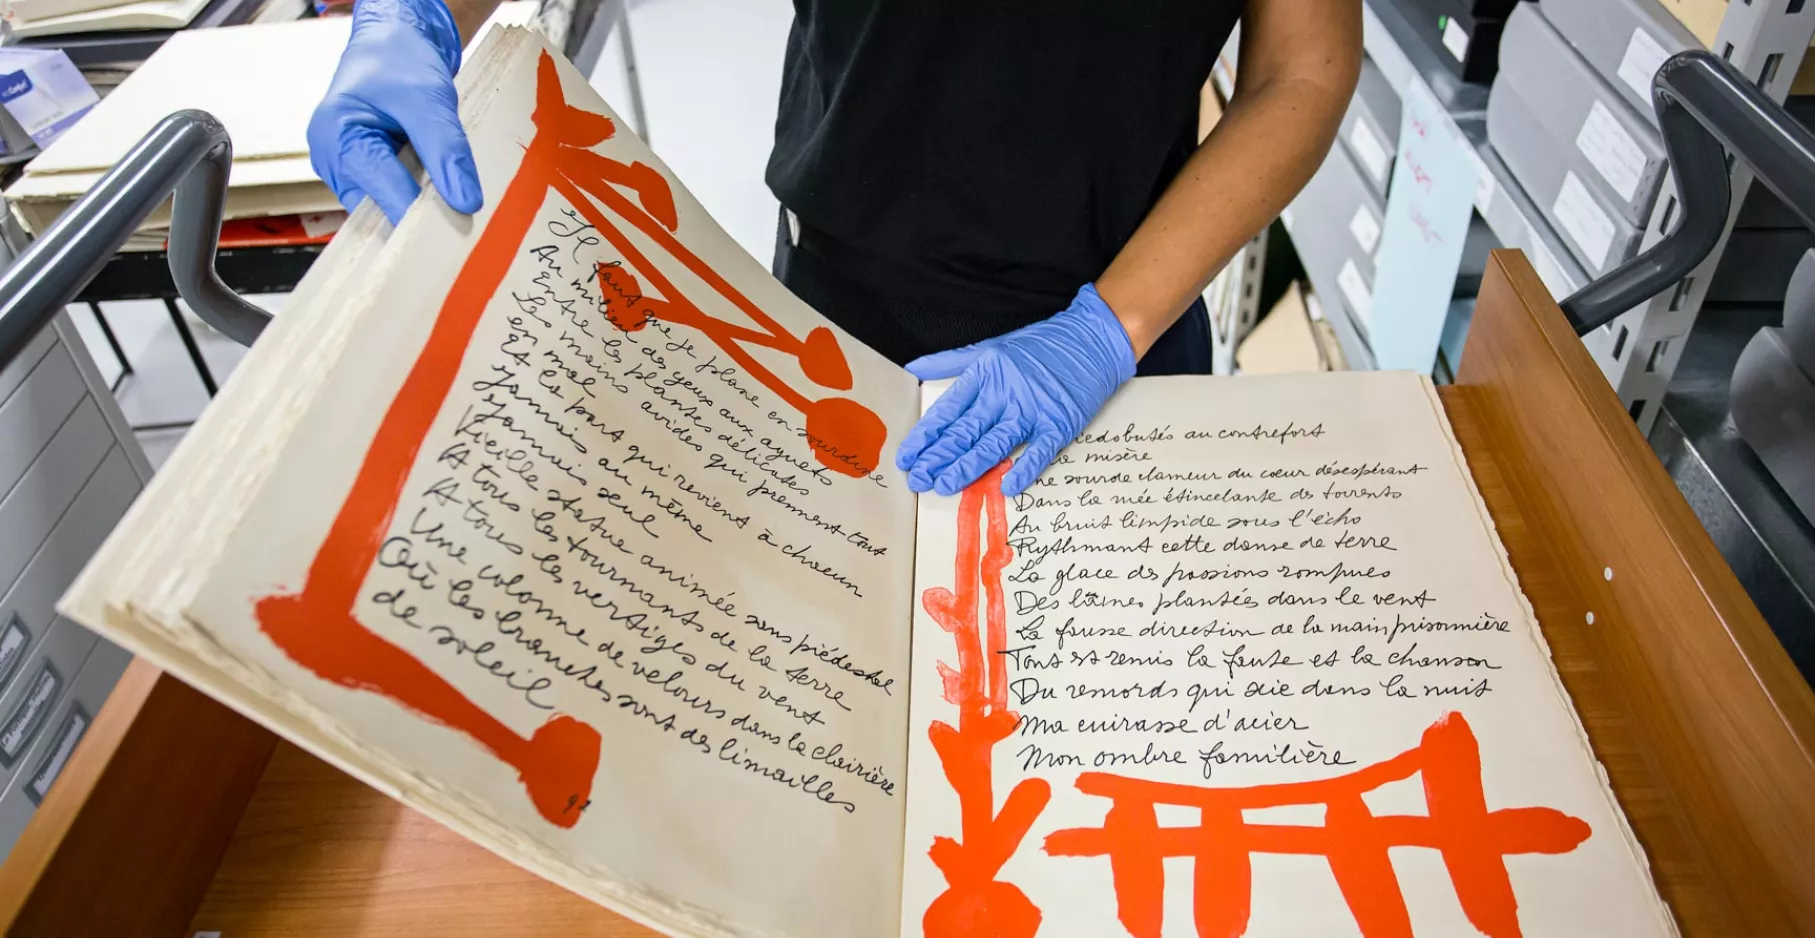 Il faut que je plane en sourdine
Au milieu des yeux aux aguets
Entre les plantes délicates
Les mains avides qui prennent tout
en mal
Et la part qui revient à chacun
Jamais au même
Jamais seul
Vieille statue animée sans piédestal
A tous les tournants de la terre
A tous les vertiges du vent
Une colonne de velours dans la clairière
Où les branches sont des limailles
de soleil
93
au contrefort
la misère
sourde clameur du cœur désespérant
Dans la mée étincelante des torrents
Au bruit limpide sous l'écho
Rythmant cette danse de terre
La glace des passions rompues
Des lames plantées dans le vent
La fausse direction de la main prisonnière
Tout est remis la faute et la chanson
Du remords qui scie dans la nuit
Ma cuirasse d'acier
Mon ombre familière